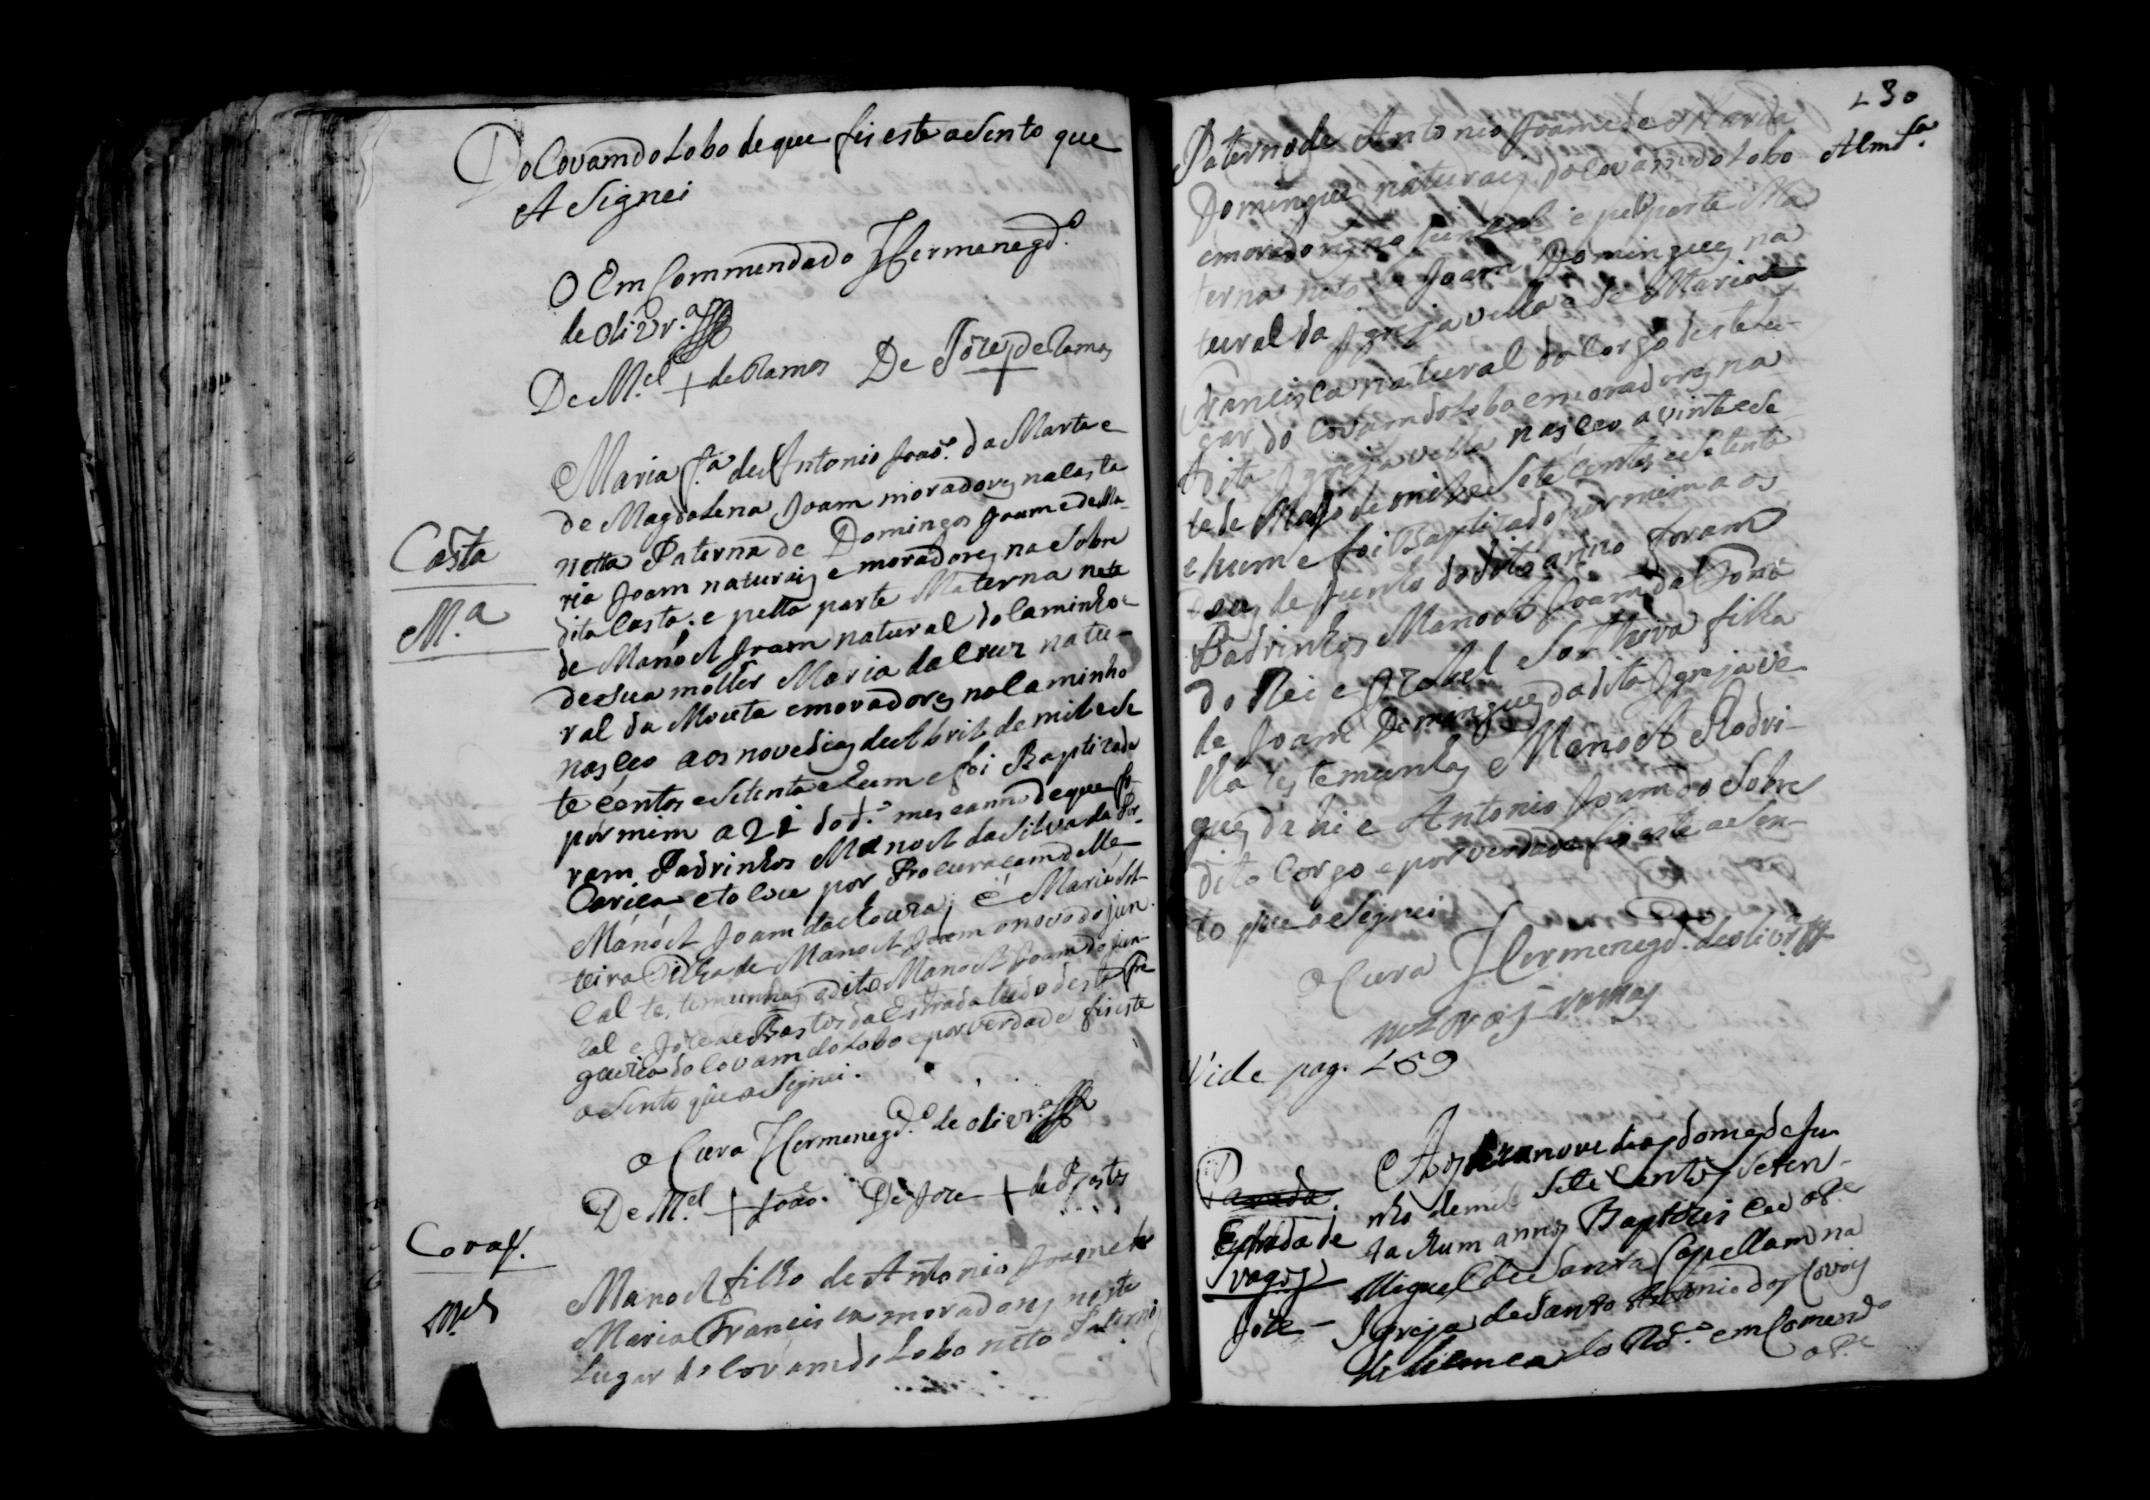 Do Covam do Lobo de que fis este aSento que
ASignei
O EmCommendado Hermenegd.º
de olivr.ª
De M.el + de Ramos De Joze + de Ramos
Costa
M.ª
Maria f.ª de Antonio Joaõ. da Marta e
de Magdalena Joam moradores na Costa
netta Paterna de Domingos Joam e de Ma-
ria Joam naturais e moradores na Sobre
dita Costa: e pella parte Materna neta
de Manoel Joam natural do Caminho e
de sua molher Maria da Cruz natu-
ral da Mouta e moradores no Caminho
nasceo aos nove dias de Abril de mil e Se
te centos e Setenta e hum e foi Baptizada
por mim a 21 do d.º mes e anno de que fo-
ram Padrinhos Manoel da Silva da For-
Carica e tocou por Procuraçam delle
Manoel Joam da e Maria Sol-
teira Filha de Manoel Joam o novo do Jun-
cal testemunhas o dito Manoel Joam do Jun-
cal e Joze de Bastos da Estrada tudo desta fre
guezia do Covam do Lobo e por verdade fis este
aSento que aSignei.
o Cura Hermenegd.º de olivr.ª
De M.el + Joaõ. De Joze + de Bastos
Covaõ.
M.el
Manoel filho de Antonio Joam e de
Maria Francisca moradores neste
Lugar do Covam do Lobo neto Paterno
130
Paterno de Antonio Joam e de Maria
Domingues naturais do Covam do Lobo
e moradores no e pella parte Ma
terna neto de Joam Domingues na
tural da Igreja velha e de Maria
Francisca natural do Corgo deste Lu-
gar do Covam do Lobo e moradores na
dita Igreja velha nasceo a vinte e Se
te de Mayo de mil e Sete centos e Setenta
e hum e foi Baptizado por mim aos
de Junho do dito anno foram
Padrinhos Manoel Joam da Fonte
do Rei e Izabel Solteira filha
de Joam Domingues da dita Igreja ve
lha testemunhas e Manoel Rodri-
gues dahi e Antonio Joam do Sobre
dito Corgo e por verdade fis este aSen-
to que aSignei
o Cura Hermenegd.º de olivr.ª
Vide pag. 159
Estrada de
Vagos
Joze -
Aos dezanove dias do mes de Ju
nho de mil Sete Centos Seten-
ta e hum annos Baptizei eu o P.e
Miguel de Santa Capellam na
Igreja de Santo Antonio dos Covois
de licença do Rd.º emComend.º
o P.e